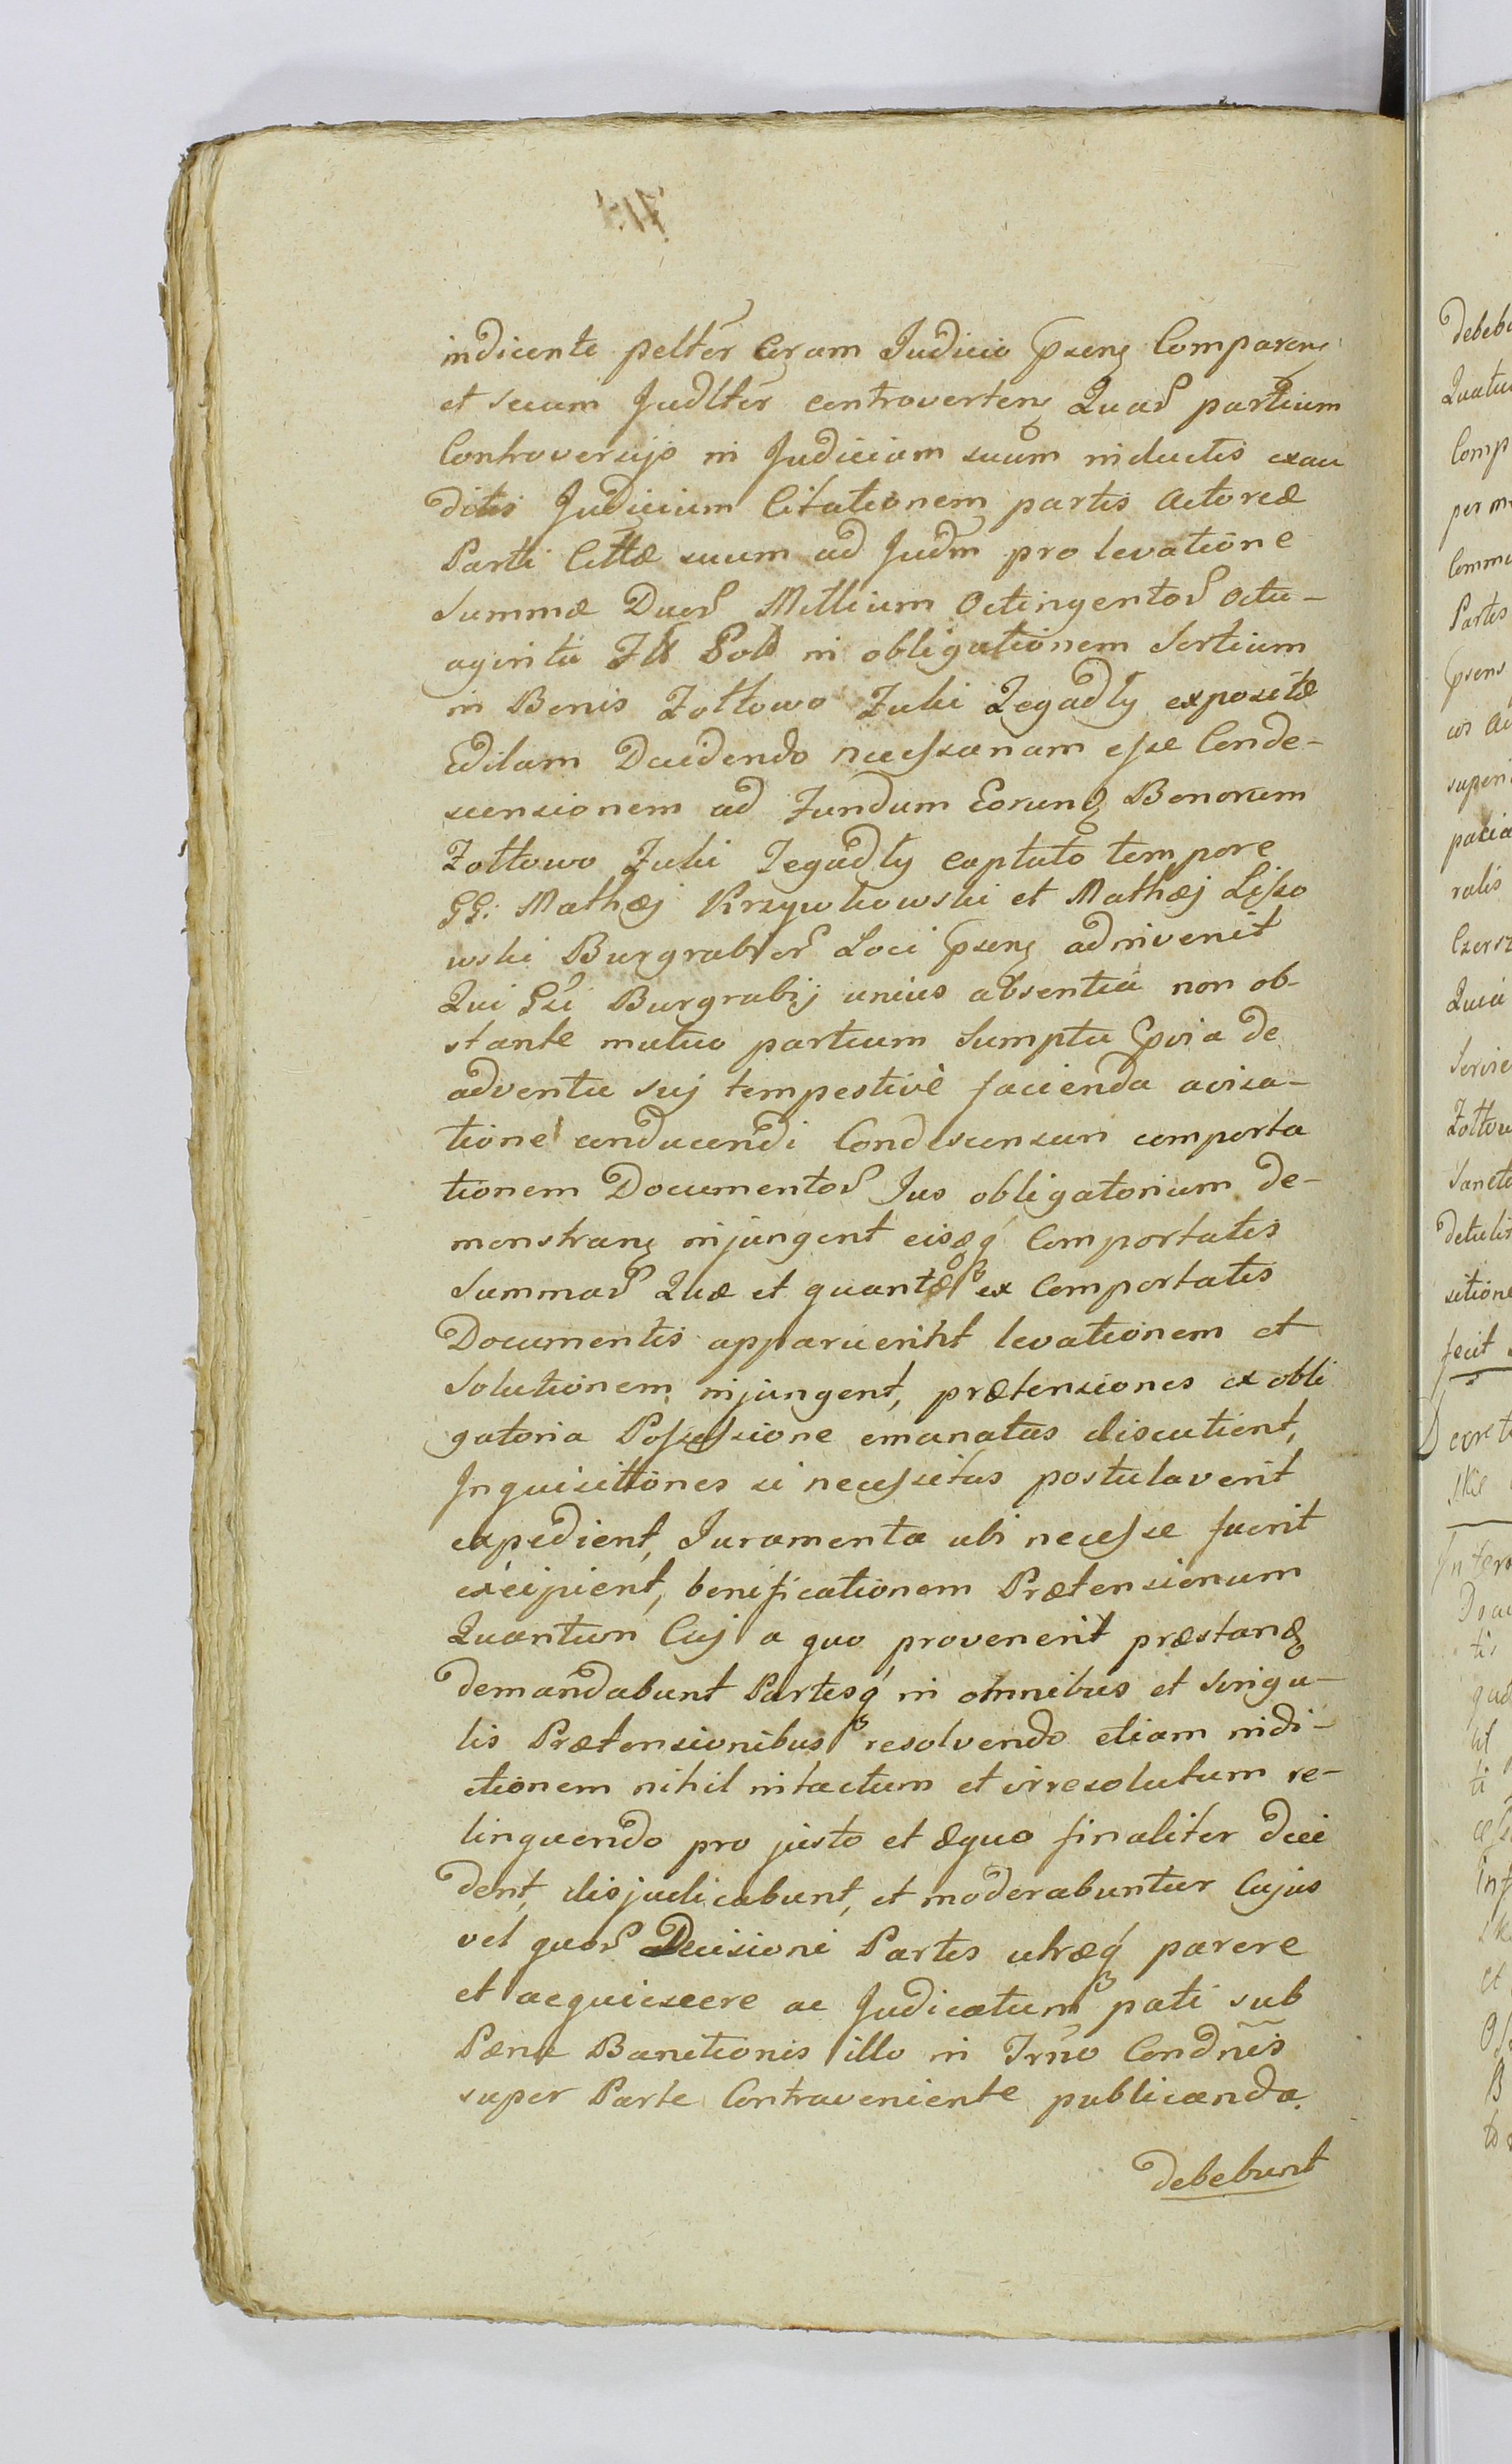 indicente peltēr Coram Judicio p̄senꝫ Comparenꝫ
et secum Judltēr controvertenꝫ Quar̃ partium
Controversijs in Judicium suum inductis exau
ditis Judicium Citationem partis Actoreæ
Parti Cittæ suum ad Judm̃ pro levatione
Summæ Duor̃ Millium Octingentor̃ Octu-
aginta Fll Poll in obligationem Sortium
in Bonis Zołtowo Fuki Zegadły expositæ
Editam Decidendo necessariam esse Conde-
scensionem ad Fundum Eorundꝫ Bonorum
Zołtowo Fuki Zegadły captato tempore
GG: Mathæj Krzywkowski et Mathæj Lisso
wski Burgrabior̃ Loci p̄senꝫ adinvenit
Qui Gsi Burgrabij unius absentia non ob-
stante mutuo partium Sumptu p̄via de
adventu suj tempestivè facienda aviza-
tione conducendi Condescensuri comporta
tionem Documentor̃ Jus obligatorium de-
monstranꝫ injungent eisqꝫ Comportatis
Summar̃ Quæ et quantæ ex Comportatis
Documentis apparuerint levationem et
Solutionem injungent, prætensiones ex obli
gatoria Possessione emanatas discutient,
Inquisitiones si necessitas postulaverit
expedient, Juramenta ubi necesse fuerit
excipient, bonificationem Prætensionum
Quantum Cuj a quo provenerit præstandꝫ
demandabunt Partesq́ in omnibus et singu-
lis Prætensionibus resolvendo etiam indi-
ctionem nihil intactum et irresolutum re-
linquendo pro justo et æquo finaliter deci
dent, disjudicabunt, et moderabuntur Cujus
vel quor̃ Decisioni Partes utræq́ parere
et acquiescere ac Judicatum pati sub
Pæna Banitionis illo in Trnō Condñis
super Parte Contraveniente publicanda.
debebunt